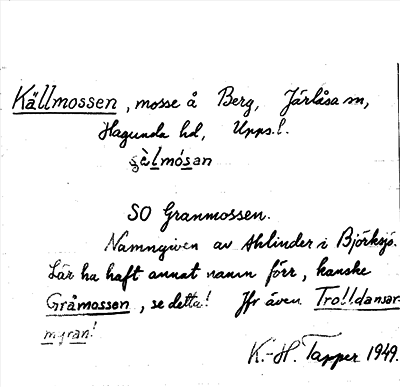 Källmossen, mosse å Berg, Järlåsa sn,
Hagunda hd, Upps.l.
ʂèlmósan
SO Granmossen.
Namngiven av Ahlinder i Björksjö.
Lär ha haft annat namn förr, kanske
Gråmossen, se detta! Jfr även Trolldansar-
myran!
K.-H. Tapper 1949.